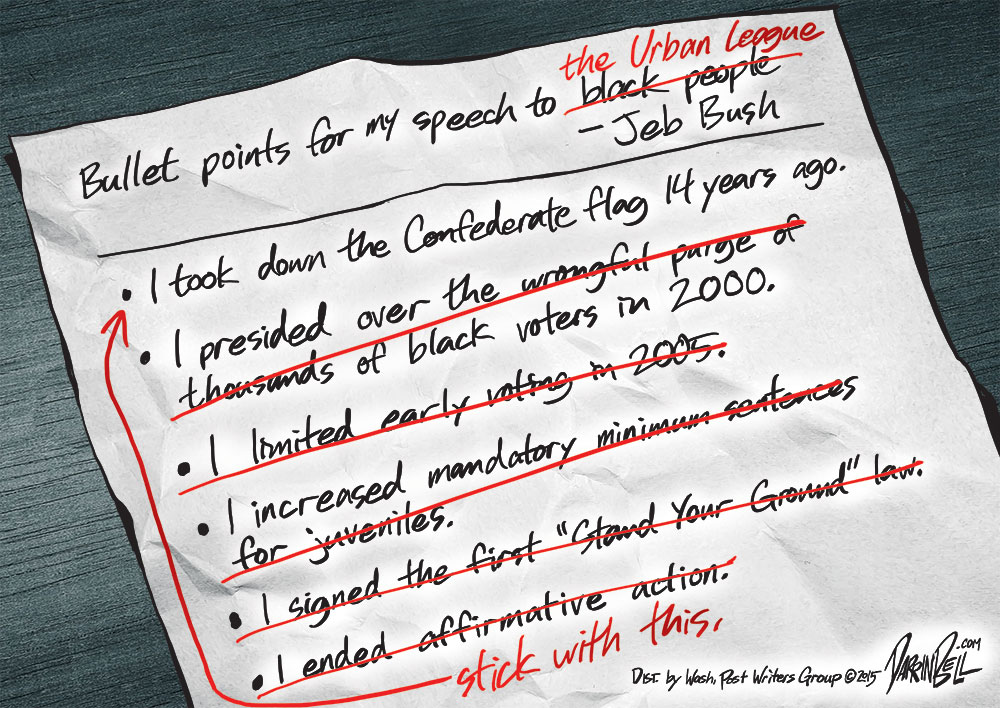 the Urban League
Bullet points for my speech to black people
– Jeb Bush
• I took down the Confederate flag 14 years ago.
• I presided over the wrongful purge of
thousands of black voters in 2000.
• I limited early voting in 2005.
• I increased mandatory minimum sentences
for juveniles.
• I signed the first "Stand Your Ground" law.
• I ended affirmative action.
stick with this.
Dist. by Wash. Post Writers Group ©2015 DARRINBELL.com